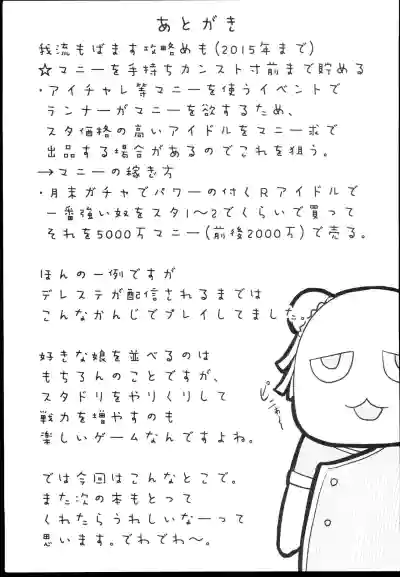 あとがき
我流もばます攻略めも(2015年まで)
☆マニーを手持ちカンスト寸前まで貯める
・アイチャレ等マニーを使うイベントで
ランナーがマニーを欲するため、
スタ価格の高いアイドルをマニー求で
出品する場合があるのでこれを狙う。
→マニーの稼ぎ方
・月末ガチャでパワーの付くRアイドルで
一番強い奴をスタ1〜2でくらいで買って
それを5000万マニー(前後2000万)で売る。
ほんの一例ですが
デレステが配信されるまでは
こんなかんじでプレイしてました。
好きな娘を並べるのは
もちろんのことですが、
スタドリをやりくりして
戦力を増やすのも
楽しいゲームなんですよね。
では今回はこんなとこで。
また次の本もとって
くれたらうれしいなーって
思います。でわでわ〜。